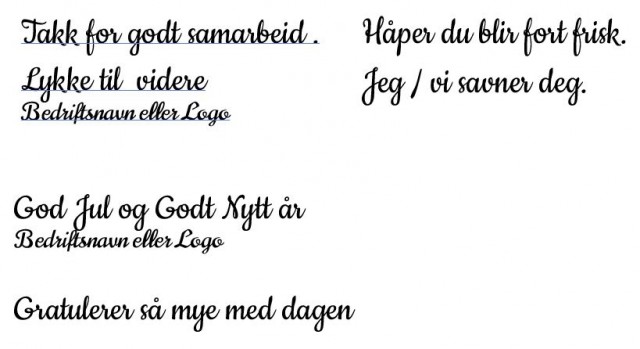 Takk for godt samarbeid .
Lykke til videre
Bedriftsnavn eller Logo
Håper du blir fort frisk.
Jeg / vi savner deg.
God Jul og Godt Nytt år
Bedriftsnavn eller Logo
Gratulerer så mye med dagen